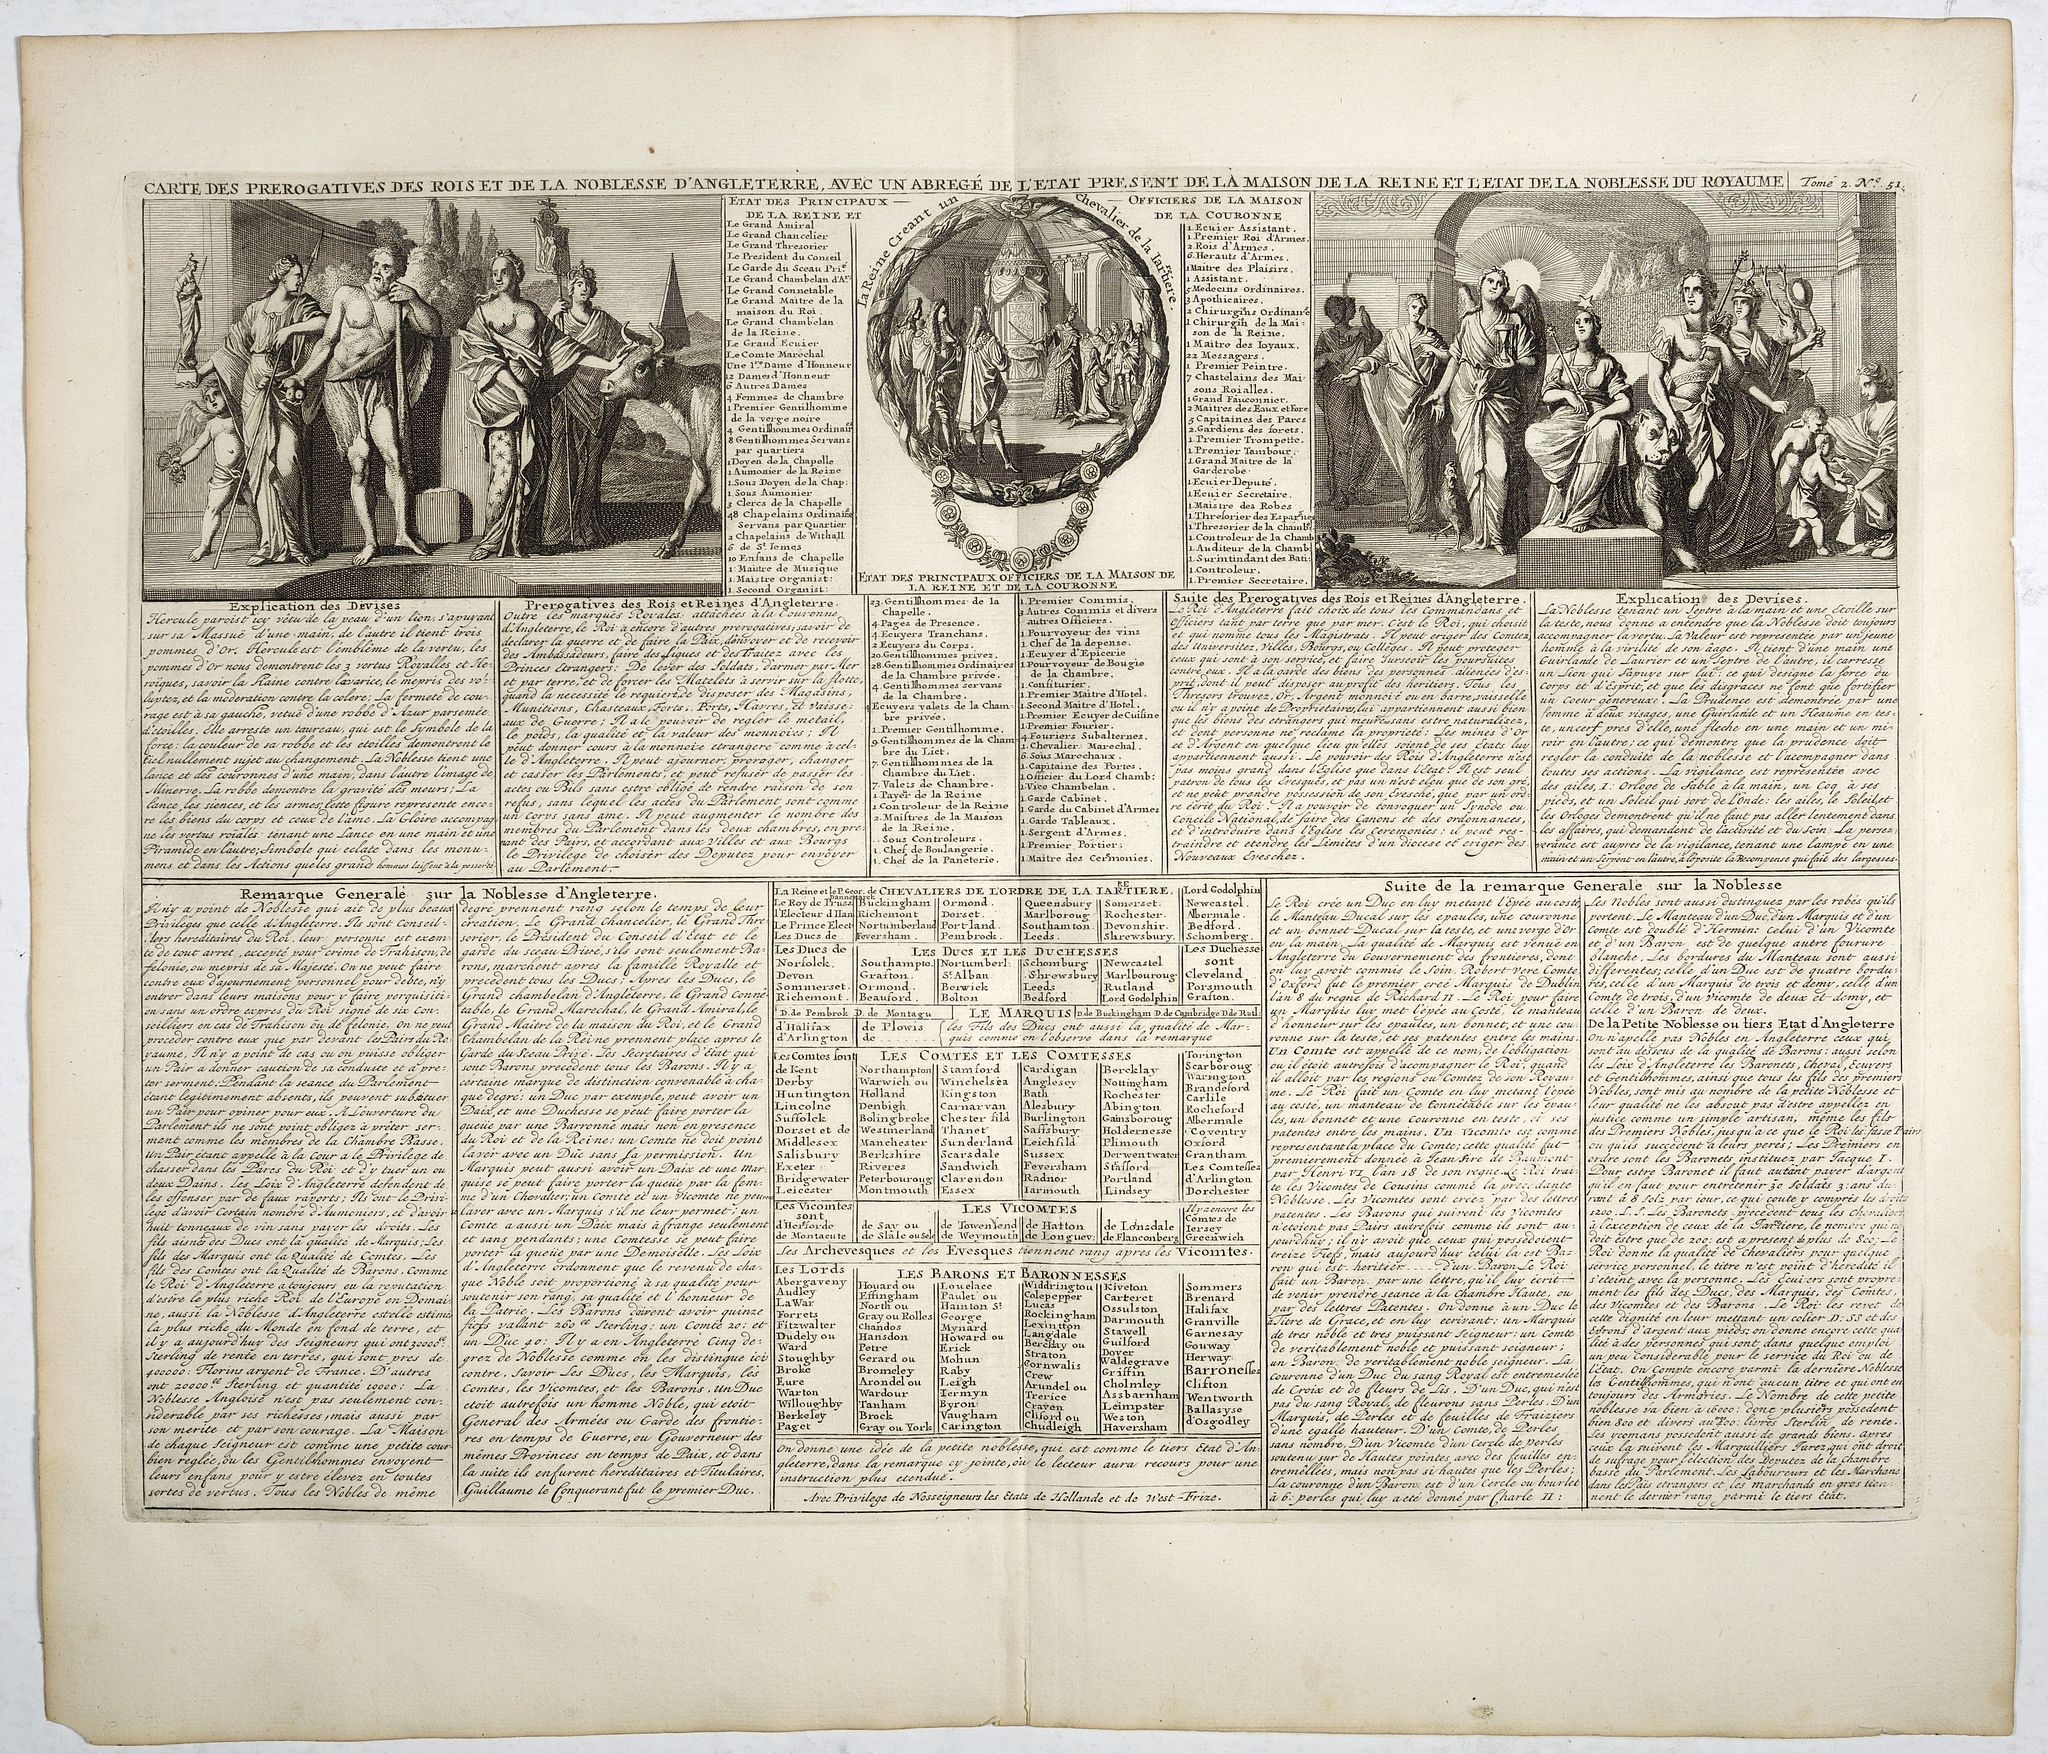 CARTE DES PREROGATIVES DES ROIS ET DE LA NOBLESSE D'ANGLETERRE, AVEC UN ABREGÉ DE L'ETAT PRESENT DE LA MAISON DE LA REINE ET L'ETAT DE LA NOBLESSE DU ROYAUME
Tome 2. N.º 51.
ETAT DES PRINCIPAUX
DE LA REINE ET
Le Grand Amiral
Le Grand Chancelier
Le Grand Thresorier
Le President du Conseil
Le Garde du Sceau Pri.é
Le Grand Chambelan d'An.
Le Grand Connetable
Le Grand Maitre de la
maison du Roi
Le Grand Chambelan
de la Reine.
Le Grand Ecuier
Le Comte Marechal
Une 1.re Dame d'Honneur
12 Dames d'Honneur
6 Autres Dames
4 Femmes de Chambre
1 Premier Gentilhomme
de la verge noire
4 Gentilhommes Ordinair.
8 Gentilhommes Servans
par quartiers
1 Doyen de la Chapelle
1 Aumonier de la Reine
1. Sous Doyen de la Chap:
1. Sous Aumonier
3 Clercs de la Chapelle
48 Chapelains Ordinaire
Servans par Quartier
2 Chapelains de Withall
5 de St. Iemes
10 Enfans de Chapelle
1 Maitre de Musique
1 Maistre Organist:
1. Second Organist:
La Reine Creant un Chevalier de la Iartiere.
ETAT DES PRINCIPAUX OFFICIERS DE LA MAISON DE
LA REINE ET DE LA COURONNE
OFFICIERS DE LA MAISON
DE LA COURONNE
1. Ecuier Assistant.
1 Premier Roi d'Armes.
2 Rois d'Armes.
6. Herauts d'Armes.
1 Maitre des Plaisirs.
1 Assistant.
5 Medecins Ordinaires.
3 Apothicaires.
2 Chirurgins Ordinaire
1 Chirurgih de la Mai-
son de la Reine.
1 Maitre des Ioyaux.
22 Messagers.
1 Premier Peintre.
7 Chastelains des Mai
sons Roialles.
1 Grand Fauconnier.
2 Maitres des Eaux et Fore
5 Capitaines des Parcs
2. Gardiens des forets.
1. Premier Trompette.
1. Premier Tambour.
1 Grand Maitre de la
Garderobe
1 Ecuier Deputé.
1 Ecuier Secretaire.
1. Maistre des Robes
1 Thresorier des Espar.
1 Thresorier de la Chamb.
1. Controleur de la Chamb
1. Auditeur de la Chamb
1. Surintindant des Bati:
1. Controleur.
1. Premier Secretaire.
Explication des Devises
Hercule paroist icy vétu de la peau d'un lion, s'apuyant
sur sa Massue d'une main, de l'autre il tient trois
pommes d'Or. Hercule est l'embléme de la vertu, les
pommes d'Or nous demontrent les 3 vertus Royalles et He-
roiques, savoir la Haine contre l'avarice, le mepris des vo-
luptez, et la moderation contre la colere; La fermeté de cou-
rage est à sa gauche, vetuë d'une robbe d'Azur parsemée
d'étoilles, Elle arreste un taureau, qui est le Symbole de la
force: la couleur de sa robbe et les etoilles demontrent le
Ciel nullement sujet au changement. La Noblesse tient une
lance et des couronnes d'une main, dans l'autre l'image de
Minerve. La robbe demontre la gravité des meurs; La
lance, les siences, et les armes; cette figure represente enco-
re les biens du corps et ceux de l'âme. La Gloire accompag
ne les vertus roiales tenant une Lance en une main et une
Piramide en l'autre; Simbole qui eclate dans les monu-
mens et dans les Actions que les grand hommes laissent à la posterité.
Prerogatives des Rois et Reines d'Angleterre.
Outre les marques Royales attachées à la Couronne
d'Angleterre, le Roi a encore d'autres prerogatives; savoir de
declarer la guerre et de faire la Paix, d'envoyer et de recevoir
des Ambassadeurs, faire des Ligues et des Traitez avec les
Princes Etrangers: De lever des Soldats, d'armer par Mer
et par terre, et de forcer les Matelots à servir sur la flotte,
quand la necessité le requiert; de disposer des Magasins,
Munitions, Chasteaux, Forts, Ports, Havres, et Vaisse-
aux de Guerre: Il a le pouvoir de regler le metail,
le poids, la qualité et la valeur des monnoies; Il
peut donner cours à la monnoie etrangere comme à cel-
le d'Angleterre. Il peut ajourner, proroger, changer
et casser les Parlements, et peut refuser de passer les
actes ou Bils sans estre obligé de rendre raison de son
refus, sans lequel les actes du Parlement sont comme
un corps sans ame. Il peut augmenter le nombre des
membres du Parlement dans les deux chambres, en pre
nant des Pairs, et accordant aux Villes et aux Bourgs
le Privilege de choisir des Deputez pour envoyer
au Parlement.
23. Gentilhommes de la
Chapelle.
4. Pages de Presence.
4. Ecuyers Tranchans.
2 Ecuyers du Corps.
20 Gentilhommes privez.
28 Gentilhommes Ordinaires
de la Chambre privée.
4. Gentilhommes servans
de la Chambre.
Ecuyers valets de la Cham-
bre privée.
1. Premier Gentilhomme.
9 Gentilhommes de la Cham
bre du Liet.
7. Gentilhommes de la
Chambre du Liet.
7. Valets de Chambre.
1. Payer de la Reine
1 Controleur de la Reine
2. Maistres de la Maison
de la Reine.
Sous Controleurs.
1. Chef de Boulangerie.
1. Chef de la Paneterie.
1. Premier Commis.
Autres Commis et divers
autres Officiers.
1. Pourvoyeur des vins
1. Chef de la depense.
1 Ecuyer d'Epicerie
1 Pourvoyeur de Bougie
de la Chambre.
1. Confiturier.
1. Premier Maitre d'Hotel.
1. Second Maitre d'Hotel.
1. Premier Ecuyer de Cuisine
1. Premier Fourier.
4. Fouriers Subalternes.
1. Chevalier Marechal.
6. Sous Marechaux.
1. Capitaine des Portes.
1. Officier du Lord Chamb:
1. Vice Chambelan.
1. Garde Cabinet.
1. Garde du Cabinet d'Armes
1. Garde Tableaux.
1. Sergent d'Armes.
1. Premier Portier.
1. Maitre des Ceremonies.
Suite des Prerogatives des Rois et Reines d'Angleterre.
Le Roi d'Angleterre fait choix de tous les Commandans et
Officiers tant par terre que par mer. C'est le Roi, qui choisit
et qui nomme tous les Magistrats. Il peut eriger des Comtez,
des Universitez, Villes, Bourgs, ou Colléges. Il peut proteger
ceux qui sont à son service, et faire surseoir les poursuites
contre eux. Il a la garde des biens des personnes alienées d'es-
prit, dont il peut disposer au profit des heritiers. Tous les
Thresors trouvez, Or, Argent monnoié ou en barre, vaisselle
ou il n'y a point de Proprietaires, lui appartiennent aussi bien
que les biens des etrangers qui meurent sans estre naturalisez,
et dont personne ne réclame la proprieté: Les mines d'Or
et d'Argent en quelque lieu qu'elles soient de ses Etats luy
appartiennent aussi. Le pouvoir des Rois d'Angleterre n'est
pas moins grand dans l'Eglise que dans l'Etat. Il est seul
patron de tous les Evesques, et pas un n'est eleu que de son gré,
et ne peut prendre possession de son Evesché, que par un or-
dre écrit du Roi. Il a pouvoir de convoquer un Synode ou
Concile National, de faire des Canons et des ordonnances,
et d'introduire dans l'Eglise les Ceremonies: il peut res-
traindre et etendre les Limites d'un diocese et eriger des
Nouveaux Eveschez.
Explication des Devises.
La Noblesse tenant un Septre à la main et une Etoille sur
la teste, nous donne à entendre que la Noblesse doit toujours
accompagner la vertu. La Valeur est representée par un jeune
homme à la virilité de son aage. Il tient d'une main une
Guirlande de Laurier et un Septre de l'autre, il carresse
un Lion qui s'apuye sur lui: ce qui designe la force du
Corps et d'Esprit, et que les disgraces ne font que fortifier
un Coeur généreux. La Prudence est demontrée par une
femme à deux visages, une Guirlande et un Heaume en tes-
te, un cerf pres d'elle, une fleche en une main et un mi-
roir en l'autre; ce qui démontre que la prudence doit
regler la conduite de la noblesse et l'acompagner dans
toutes ses actions. La vigilance est representée avec
des ailes, 1. Orloge de Sable à la main, un Coq à ses
pieds, et un Soleil qui sort de l'Onde: les ailes, le Soleil, et
les Orloges demontrent qu'il ne faut pas aller lentement dans
les affaires, qui demandent de l'activité et du soin. La perse-
verance est aupres de la vigilance, tenant une Lampe en une
main et un Serpent en l'autre, à l'oposite la Recompense qui fait des largesses.
Remarque Generale sur la Noblesse d'Angleterre.
Il n'y a point de Noblesse qui ait de plus beaux
Privileges que celle d'Angleterre. Ils sont Conseil-
lers hereditaires du Roi, leur personne est exem-
te de tout arret, excepté pour crime de Trahison, de
felonie, ou mepris de sa Majesté. On ne peut faire
contre eux d'ajournement personnel pour debte, n'y
entrer dans leurs maisons pour y faire perquisici-
on sans un ordre expres du Roi signé de six Con-
seilliers en cas de Trahison ou de felonie. On ne peut
proceder contre eux que par devant les Pairs du Ro-
yaume, Il n'y a point de cas ou on puisse obliger
un Pair a donner caution de sa conduite et à pre-
ter serment: Pendant la seance du Parlement
étant legitimement absents, ils peuvent substituer
un Pair pour opiner pour eux. A L'ouverture du
Parlement ils ne sont point obligez à préter ser-
ment comme les membres de la Chambre Basse.
Un Pair étant appellé à la Cour a le Privilege de
chasser dans les Parcs du Roi et d'y tuer un ou
deux Dains. Les Loix d'Angleterre defendent de
les offenser par de faux raports; Ils ont le Privi-
lege d'avoir Certain nombre d'Aumoniers, et d'avoir
huit tonneaux de vin sans payer les droits. Les
fils aisnés des Ducs ont la qualité de Marquis; Les
fils des Marquis ont la Qualité de Comtes. Les
fils des Comtes ont la Qualité de Barons. Comme
le Roi d'Angleterre a toujours eu la reputation
d'estre le plus riche Roi de l'Europe en Domai-
ne, aussi la Noblesse d'Angleterre est elle estimée
la plus riche du Monde en fond de terre, et
il y a aujourd'huy des Seigneurs qui ont 30000 ce
Sterling de rente en terres, qui sont pres de
400000: Florins argent de France. D'autres
ont 20000 ce Sterling et quantité 10000: La
Noblesse Angloise n'est pas seulement con-
siderable par ses richesses, mais aussi par
son merite et par son courage. La Maison
de chaque Seigneur est comme une petite cour
bien reglée, ou les Gentilhommes envoyent
leurs enfans pour y estre elevez en toutes
sortes de vertus. Tous les Nobles de même
degré prennent rang selon le temps de leur
creation. Le Grand Chancelier, le Grand Thre
sorier, le Président du Conseil d'Etat et le
garde du sceau Privé, s'ils sont seulement Ba-
rons, marchent apres la famille Royalle et
precedent tous les Ducs; Apres les Ducs, le
Grand chambelan d'Angleterre, le Grand Conné
table, le Grand Marechal, le Grand Amiral, le
Grand Maitre de la maison du Roi, et le Grand
Chambelan de la Reine prennent place apres le
Garde du Sceau Privé. Les Secretaires d'Etat qui
sont Barons precedent tous les Barons. Il y a
certaine marque de distinction convenable à cha-
que degré; un Duc par exemple, peut avoir un
Daix, et une Duchesse se peut faire porter la
queüe par une Barronne mais non en presence
du Roi et de la Reine: un Comte ne doit point
laver avec un Duc sans sa permission. Un
Marquis peut aussi avoir un Daix et une mar-
quise se peut faire porter la queüe par la fem-
me d'un Chevalier; un Comte et un Vicomte ne peuvent
laver avec un Marquis s'il ne leur permet; un
Comte a aussi un Daix mais à frange seulement
et sans pendants; une Comtesse se peut faire
porter la queüe par une Demoiselle. Les Loix
d'Angleterre ordonnent que le revenu de cha-
que Noble soit proportioné à sa qualité pour
soutenir son rang, sa qualité et l'honneur de
la Patrie. Les Barons doivent avoir quinze
fiefs valant 260 ce Sterling: un Comte 20: et
un Duc 40: Il y a en Angleterre Cinq de-
grez de Noblesse comme on les distingue ici
contre, savoir Les Ducs, les Marquis, les
Comtes, les Vicomtes, et les Barons. Un Duc
etoit autrefois un homme Noble, qui etoit
General des Armées ou Garde des frontie-
res en temps de Guerre, ou Gouverneur des
mêmes Provinces en temps de Paix, et dans
la suite ils en furent hereditaires et Titulaires.
Guillaume le Conquerant fut le premier Duc.
La Reine et le P. Geor. de Dannemarck
CHEVALIERS DE L'ORDRE DE LA IARTIERE.
Le Roy de Prusse
l'Electeur d'Han
Le Prince Elect
Les Ducs de
Buckingham
Richemont
Nortumberland
Feversham.
Ormond.
Dorset.
Portland.
Pembrock.
Queensbury
Marlboroug
Southamton.
Leeds.
Somerset.
Rochester.
Devonshir.
Shrewsbury.
Lord Godolphin
Newcastel.
Albermale.
Bedford.
Schomberg.
LES DUCS ET LES DUCHESSES
Les Ducs de
Norfolck.
Devon
Sommerset.
Richemont.
Southampto.
Grafton.
Ormond.
Beauford.
Nortumberl:
St. Alban
Berwick
Bolton
Schonburg
Shrewsbury
Leeds
Bedford
Newcastel
Marlbouroug
Rutland
Lord Godolphin
Les Duchesse
sont
Cleveland
Porsmouth
Grafton.
D. de Pembrok D. de Montagu LE MARQUIS D. de Buckingham D. de Cambridge D. de Rut.
d'Halifax
d'Arlington
de Plowis
de
les Fils des Ducs ont aussi la qualité de Mar-
quis comme on l'observe dans la remarque
LES COMTES ET LES COMTESSES
Les Comtes sont
de Kent
Derby
Huntington
Lincolne
Suffolck
Dorset et de
Middlesex
Salisbury
Exeter
Bridgewater
Leicester
Northampton
Warwich ou
Holland
Denbigh
Bolingbroke
Westmerland
Manchester
Berkshire
Riveres
Peterbouroug
Montmouth
Stamford
Winchelsea
Kingston
Carnarvan
Chesterfild
Thanet
Sunderland
Scarsdale
Sandwich
Clarendon
Essex
Cardigan
Anglesey
Bath
Alesbury
Burlington
Saffsbury
Leichfild
Sussex
Feversham
Radnor
Iarmouth
Berckley
Nottingham
Rochester
Abington
Gainsboroug
Holdernesse
Plimouth
Derwentwater
Stafford
Portland
Lindsey
Torington
Scarboroug
Warington
Brandeford
Carlile
Rocheford
Albermale
Coventry
Oxford
Grantham
Les Comtesses
d'Arlington
Dorchester
LES VICOMTES
Les Vicomtes
sont
d'Hereforde
de Montacute
de Say ou
de Slàle ou sele
de Townend
de Weymouth
de Hatton
de Longuev:
de Lonsdale
de Flanconberg.
Il y a encore les
Comtes de
Iersey
Greenwich
Les Archevesques et les Evesques tiennent rang apres les Vicomtes.
LES BARONS ET BARONNESSES
Les Lords
Abergaveny
Audley
La War
Forrets
Fitzwalter
Dudely ou
Ward
Stoughby
Broke
Eure
Warton
Willoughby
Berkeley
Paget
Houard ou
Effingham
North ou
Gray ou Rolles
Chandos
Hansdon
Petre
Gerard ou
Bromeley
Arondel ou
Wardour
Tanham
Brock
Gray ou York
Lovelace
Paulet ou
Hainton St
George
Mynard
Howard ou
Erick
Mohun
Raby
Leigh
Iermyn
Byron
Vaugham
Carington
Widdringtou
Colepepper
Lucas
Rockingham
Lexintton
Langdale
Berclay ou
Straton
Cornwalis
Crew
Arundel ou
Trerice
Craven
Cliford ou
Chudleigh
Kiveton
Carteret
Ossulston
Darmouth
Stawell
Guilford
Dover
Waldegrave
Griffin
Cholmley
Assbarnham
Leimpster
Weston
Haversham
Sommers
Brenard
Halifax
Granville
Garnesay
Gouway
Herway
Barronesses
Clifton
Wentworth
Ballasyse
d'Osgodley
On donne une idée de la petite noblesse, qui est comme le tiers Etat d'An-
gleterre, dans la remarque cy jointe, ou le lecteur aura recours pour une
instruction plus etenduë.
Avec Privilege de Nosseigneurs les Etats de Hollande et de West-Frize.
Suite de la remarque Generale sur la Noblesse
Le Roi crée un Duc en luy metant l'Epée au costé,
le Manteau Ducal sur les epaules, une couronne
et un bonnet Ducal sur la teste, et un verge d'Or
en la main. La qualité de Marquis est venuë en
Angleterre du Gouvernement des frontieres, dont
on luy avoit commis le Soin. Robert Vere Comte
d'Oxford fut le premier creé Marquis de Dublin
l'an 8 du regne de Richard II. Le Roi pour faire
un Marquis luy met l'épée au costé, le manteau
d'honneur sur les epaules, un bonnet, et une cou-
ronne sur la teste, et ses patentes entre les mains.
Un Comte est appellé de ce nom, de l'obligation
ou il étoit autrefois d'acompagner le Roi, quand
il alloit par les regions ou Comtez de son Royau-
me. Le Roi fait un Comte en luy metant l'épée
au costé, un manteau de Connétable sur les épau-
les, un bonnet et une couronne en teste, et ses
patentes entre les mains. Un Vicomte est comme
representant la place du Comte; cette qualité fut
premierement donnée à Jean Sire de Beaumont
par Henri VI, l'an 18 de son regne. Le Roi trai-
te les Vicomtes de Cousins comme la precedante
Noblesse. Les Vicomtes sont creéz par des lettres
patentes. Les Barons qui suivent les Vicomtes
n'etoient pas Pairs autrefois comme ils sont au-
jourdhuy; il n'y avoit que ceux qui possedoient
treize Fiefs, mais aujourd'huy celui la est Ba-
ron qui est heritier .... d'un Baron. Le Roi
fait un Baron par une lettre, qu'il luy écrit
de venir prendre seance à la chambre Haute, ou
par des lettres Patentes. On donne à un Duc le
Titre de Grace, et en luy ecrivant: un Marquis
de tres noble et tres puissant Seigneur; un Comte
de veritablement noble et puissant seigneur;
un Baron de veritablement noble seigneur. La
couronne d'un Duc du sang Royal est entremeslée
de Croix et de fleurs de Lis. D'un Duc, qui n'est
pas du sang Royal, de fleurons sans Perles. D'un
Marquis, de Perles et de feuilles de Fraiziers
d'une egalle hauteur. D'un Comte, de Perles
sans nombre. D'un Vicomte d'un Cercle de perles
soutenu sur de Hautes pointes, avec des feuilles en-
tremellées, mais non pas si hautes que les Perles;
La couronne d'un Baron est d'un Cercle ou bourlet
à 6: perles qui luy a eté donné par Charle II:
Les Nobles sont aussi distinguez par les robes qu'ils
portent. Le Manteau d'un Duc, d'un Marquis et d'un
Comte est doublé d'Hermin: celui d'un Vicomte
et d'un Baron est de quelque autre fourure
blanche. Les bordures du Manteau sont aussi
differentes; celle d'un Duc est de quatre bordu-
res, celle d'un Marquis de trois et demy, celle d'un
Comte de trois, d'un vicomte de deux et demy, et
celle d'un Baron de deux.
De la Petite Noblesse ou tiers Etat d'Angleterre
On n'apelle pas Nobles en Angleterre ceux qui
sont au dessous de la qualité de Barons: aussi selon
les Loix d'Angleterre les Baronets, Cheval, Ecuyers
et Gentilhommes, ainsi que tous les fils des premiers
Nobles, sont mis au nombre de la petite Noblesse et
leur qualité ne les absout pas d'estre appellez en
justice comme un simple artisan, même les fils
des Premiers Nobles, jusqu'à ce que le Roi les fasse Pairs
ou quils succedent à leurs peres; Les Premiers en
ordre sont les Baronets instituez par Jacque I.
Pour estre Baronet il faut autant payer d'argent
qu'il en faut pour entretenir 30 Soldats 3: ans du-
rant à 8 solz par iour, ce qui coute y comprès les droits
1200. L. S. Les Baronets precedent tous les chevaliers
à l'exception de ceux de la Iartiere, le nombre qui ne
doit estre que de 200: est a present de plus de 800: Le
Roi donne la qualité de chevaliers pour quelque
service personnel, le titre n'est point d'heredité il
s'éteint avec la personne. Les Ecuiers sont propre-
ment les fils des Ducs, des Marquis, des Comtes,
des Vicomtes et des Barons. Le Roi les revet de
cette dignité en leur mettant un colier D: SS et des
Eprons d'argent aux pieds; on donne encore cette qua
lité à des personnes qui sont dans quelque emploi
un peu considerable pour le service du Roi ou de
l'Etat. On Compte encore parmi la derniere Noblesse
les Gentilhommes, qui n'ont aucun titre et qui ont en
toujours des Armoiries. Le Nombre de cette petite
noblesse va bien à 16000: donc plusiers possedent
bien 800 et divers autres 400: livres Sterlin, de rente.
Les yeomans possedent aussi de grands biens. apres
ceux la suivent les Marguilliers Iurez, qui ont droit
de sufrage pour l'election des Deputez de la chambre
basse du Parlement. Les Laboureurs et les Marchans
dans les Païs etrangers et les marchands en gros tien-
nent le dernier rang parmi le tiers Etat.